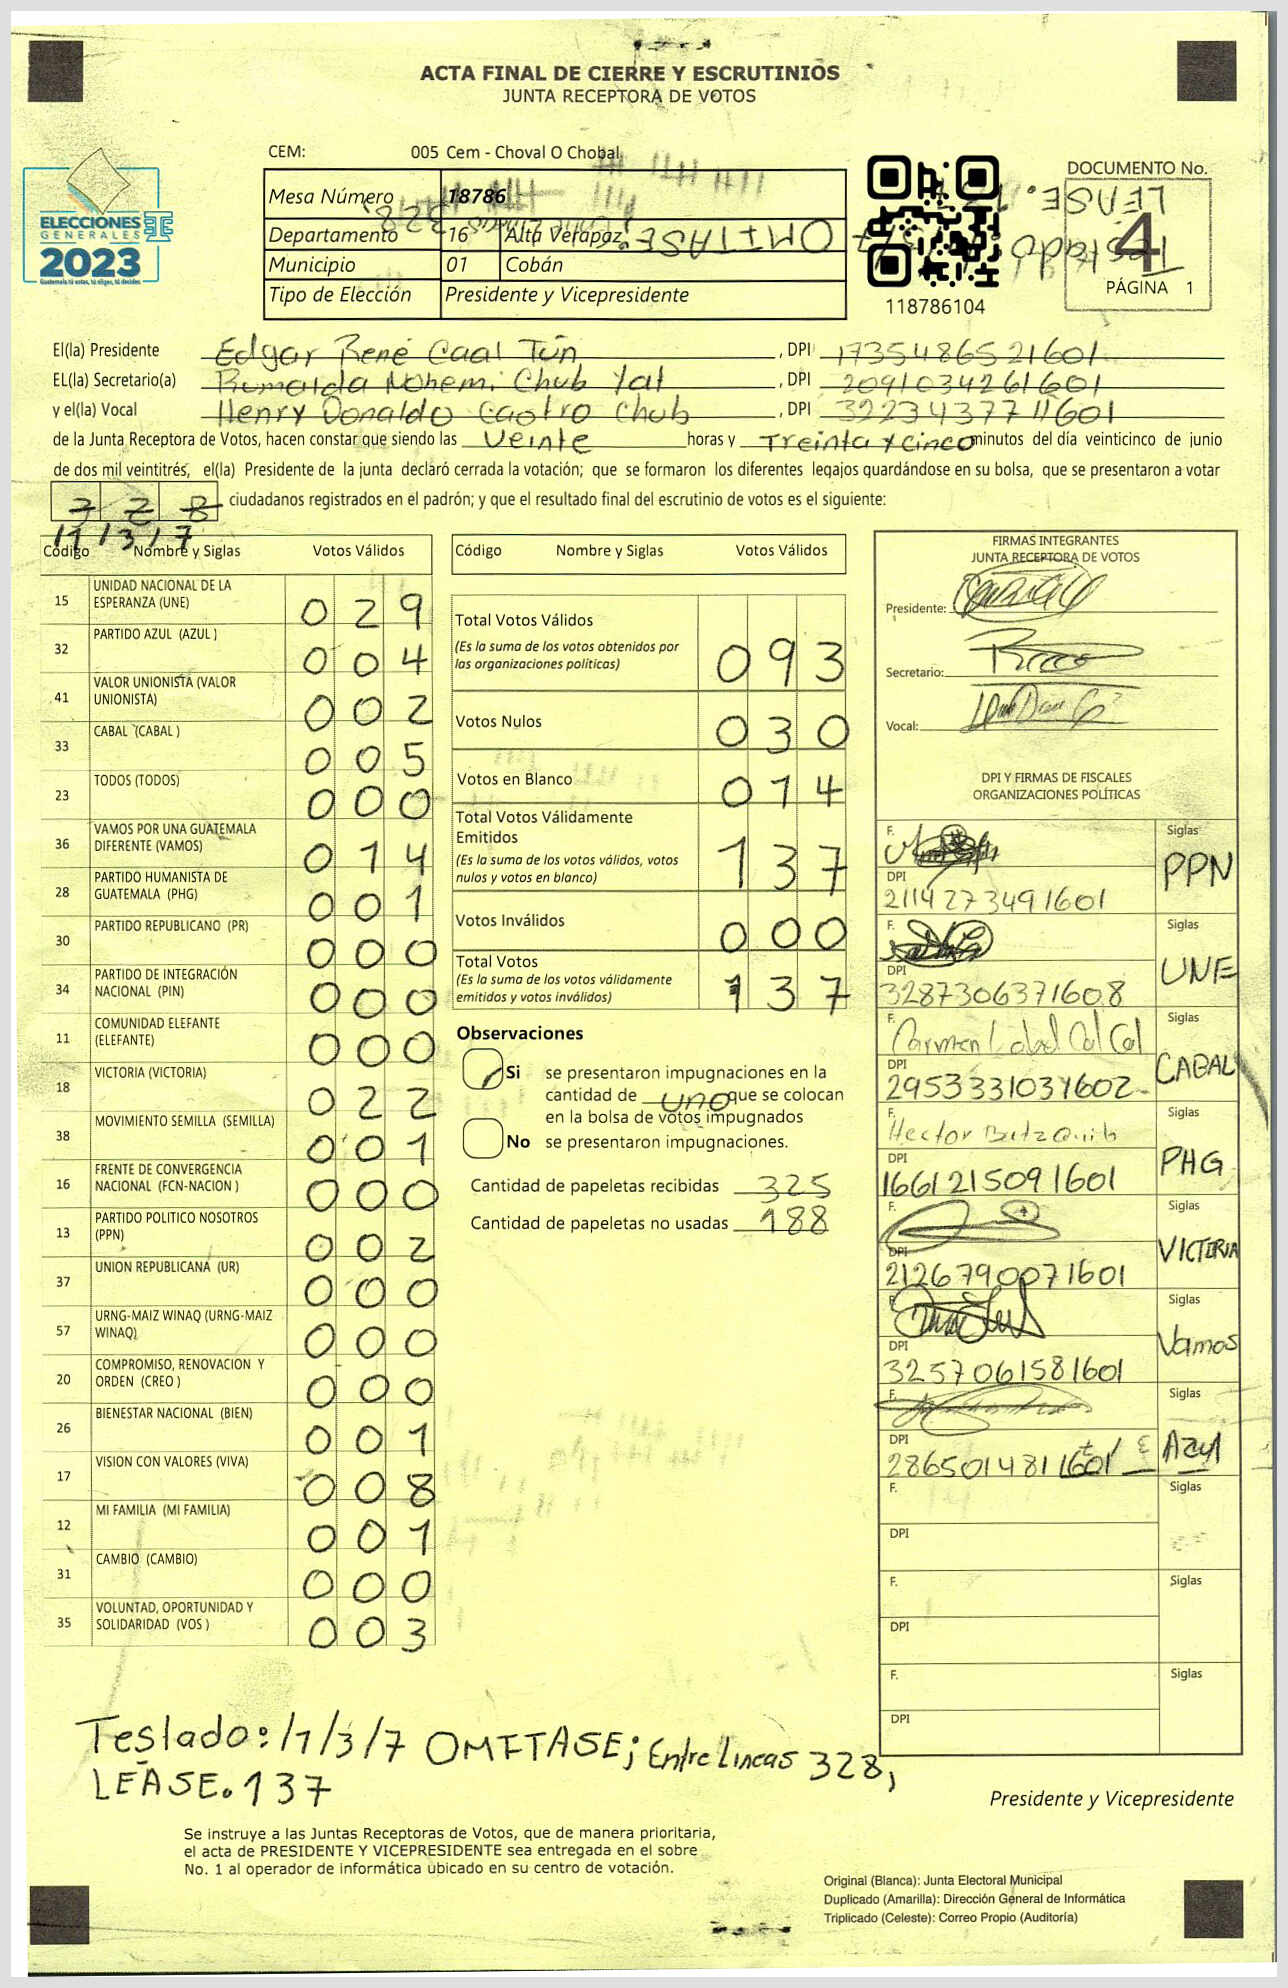 ACTA FINAL DE CIERRE Y ESCRUTINIOS
JUNTA RECEPTORA DE VOTOS
CEM: 005 Cem - Choval O Chobal
DOCUMENTO No.
4
PÁGINA 1
ELECCIONES
GENERALES
2023
Guatemala tú votas, tú eliges, tú decides
Mesa Número 18786
Departamento 16 Alta Verapaz
Municipio 01 Cobán
Tipo de Elección Presidente y Vicepresidente
118786104
El(la) Presidente Edgar René Caal Tún , DPI 1735486521601
EL(la) Secretario(a) Rumalda Nohemi Chub Yat , DPI 2091034261601
y el(la) Vocal Henry Donaldo Castro Chub , DPI 3223437711601
de la Junta Receptora de Votos, hacen constar que siendo las Veinte horas y Treinta y cinco minutos del día veinticinco de junio
de dos mil veintitrés, el(la) Presidente de la junta declaró cerrada la votación; que se formaron los diferentes legajos guardándose en su bolsa, que se presentaron a votar
ciudadanos registrados en el padrón; y que el resultado final del escrutinio de votos es el siguiente:
/1/3/7
Código Nombre y Siglas Votos Válidos
15 UNIDAD NACIONAL DE LA ESPERANZA (UNE) 029
32 PARTIDO AZUL (AZUL ) 004
41 VALOR UNIONISTA (VALOR UNIONISTA) 002
33 CABAL (CABAL ) 005
23 TODOS (TODOS) 000
36 VAMOS POR UNA GUATEMALA DIFERENTE (VAMOS) 014
28 PARTIDO HUMANISTA DE GUATEMALA (PHG) 001
30 PARTIDO REPUBLICANO (PR) 000
34 PARTIDO DE INTEGRACIÓN NACIONAL (PIN) 000
11 COMUNIDAD ELEFANTE (ELEFANTE) 000
18 VICTORIA (VICTORIA) 022
38 MOVIMIENTO SEMILLA (SEMILLA) 001
16 FRENTE DE CONVERGENCIA NACIONAL (FCN-NACION ) 000
13 PARTIDO POLITICO NOSOTROS (PPN) 002
37 UNION REPUBLICANA (UR) 000
57 URNG-MAIZ WINAQ (URNG-MAIZ WINAQ) 000
20 COMPROMISO, RENOVACION Y ORDEN (CREO ) 000
26 BIENESTAR NACIONAL (BIEN) 001
17 VISION CON VALORES (VIVA) 008
12 MI FAMILIA (MI FAMILIA) 001
31 CAMBIO (CAMBIO) 000
35 VOLUNTAD, OPORTUNIDAD Y SOLIDARIDAD (VOS ) 003
Código Nombre y Siglas Votos Válidos
Total Votos Válidos 093
(Es la suma de los votos obtenidos por
las organizaciones políticas)
Votos Nulos 030
Votos en Blanco 014
Total Votos Válidamente
Emitidos 137
(Es la suma de los votos válidos, votos
nulos y votos en blanco)
Votos Inválidos 000
Total Votos 137
(Es la suma de los votos válidamente
emitidos y votos inválidos)
Observaciones
Si se presentaron impugnaciones en la
cantidad de uno que se colocan
en la bolsa de votos impugnados
No se presentaron impugnaciones.
Cantidad de papeletas recibidas 325
Cantidad de papeletas no usadas 188
FIRMAS INTEGRANTES
JUNTA RECEPTORA DE VOTOS
Presidente:
Secretario:
Vocal:
DPI Y FIRMAS DE FISCALES
ORGANIZACIONES POLÍTICAS
F. Siglas PPN
DPI 2114273491601
F. Siglas UNE
DPI 3287306371608
F. Carmen Siglas CABAL
DPI 2953331031602
F. Hector Siglas PHG
DPI 1661215091601
F. Siglas VICTORIA
DPI 2126790071601
F. Siglas Vamos
DPI 3257061581601
F. Siglas Azul
DPI 2865014811601
F. Siglas
DPI
F. Siglas
DPI
F. Siglas
DPI
Teslado: /1/3/7 OMITASE; Entre Lineas 328,
LEASE. 137
Presidente y Vicepresidente
Se instruye a las Juntas Receptoras de Votos, que de manera prioritaria,
el acta de PRESIDENTE Y VICEPRESIDENTE sea entregada en el sobre
No. 1 al operador de informática ubicado en su centro de votación.
Original (Blanca): Junta Electoral Municipal
Duplicado (Amarilla): Dirección General de Informática
Triplicado (Celeste): Correo Propio (Auditoría)